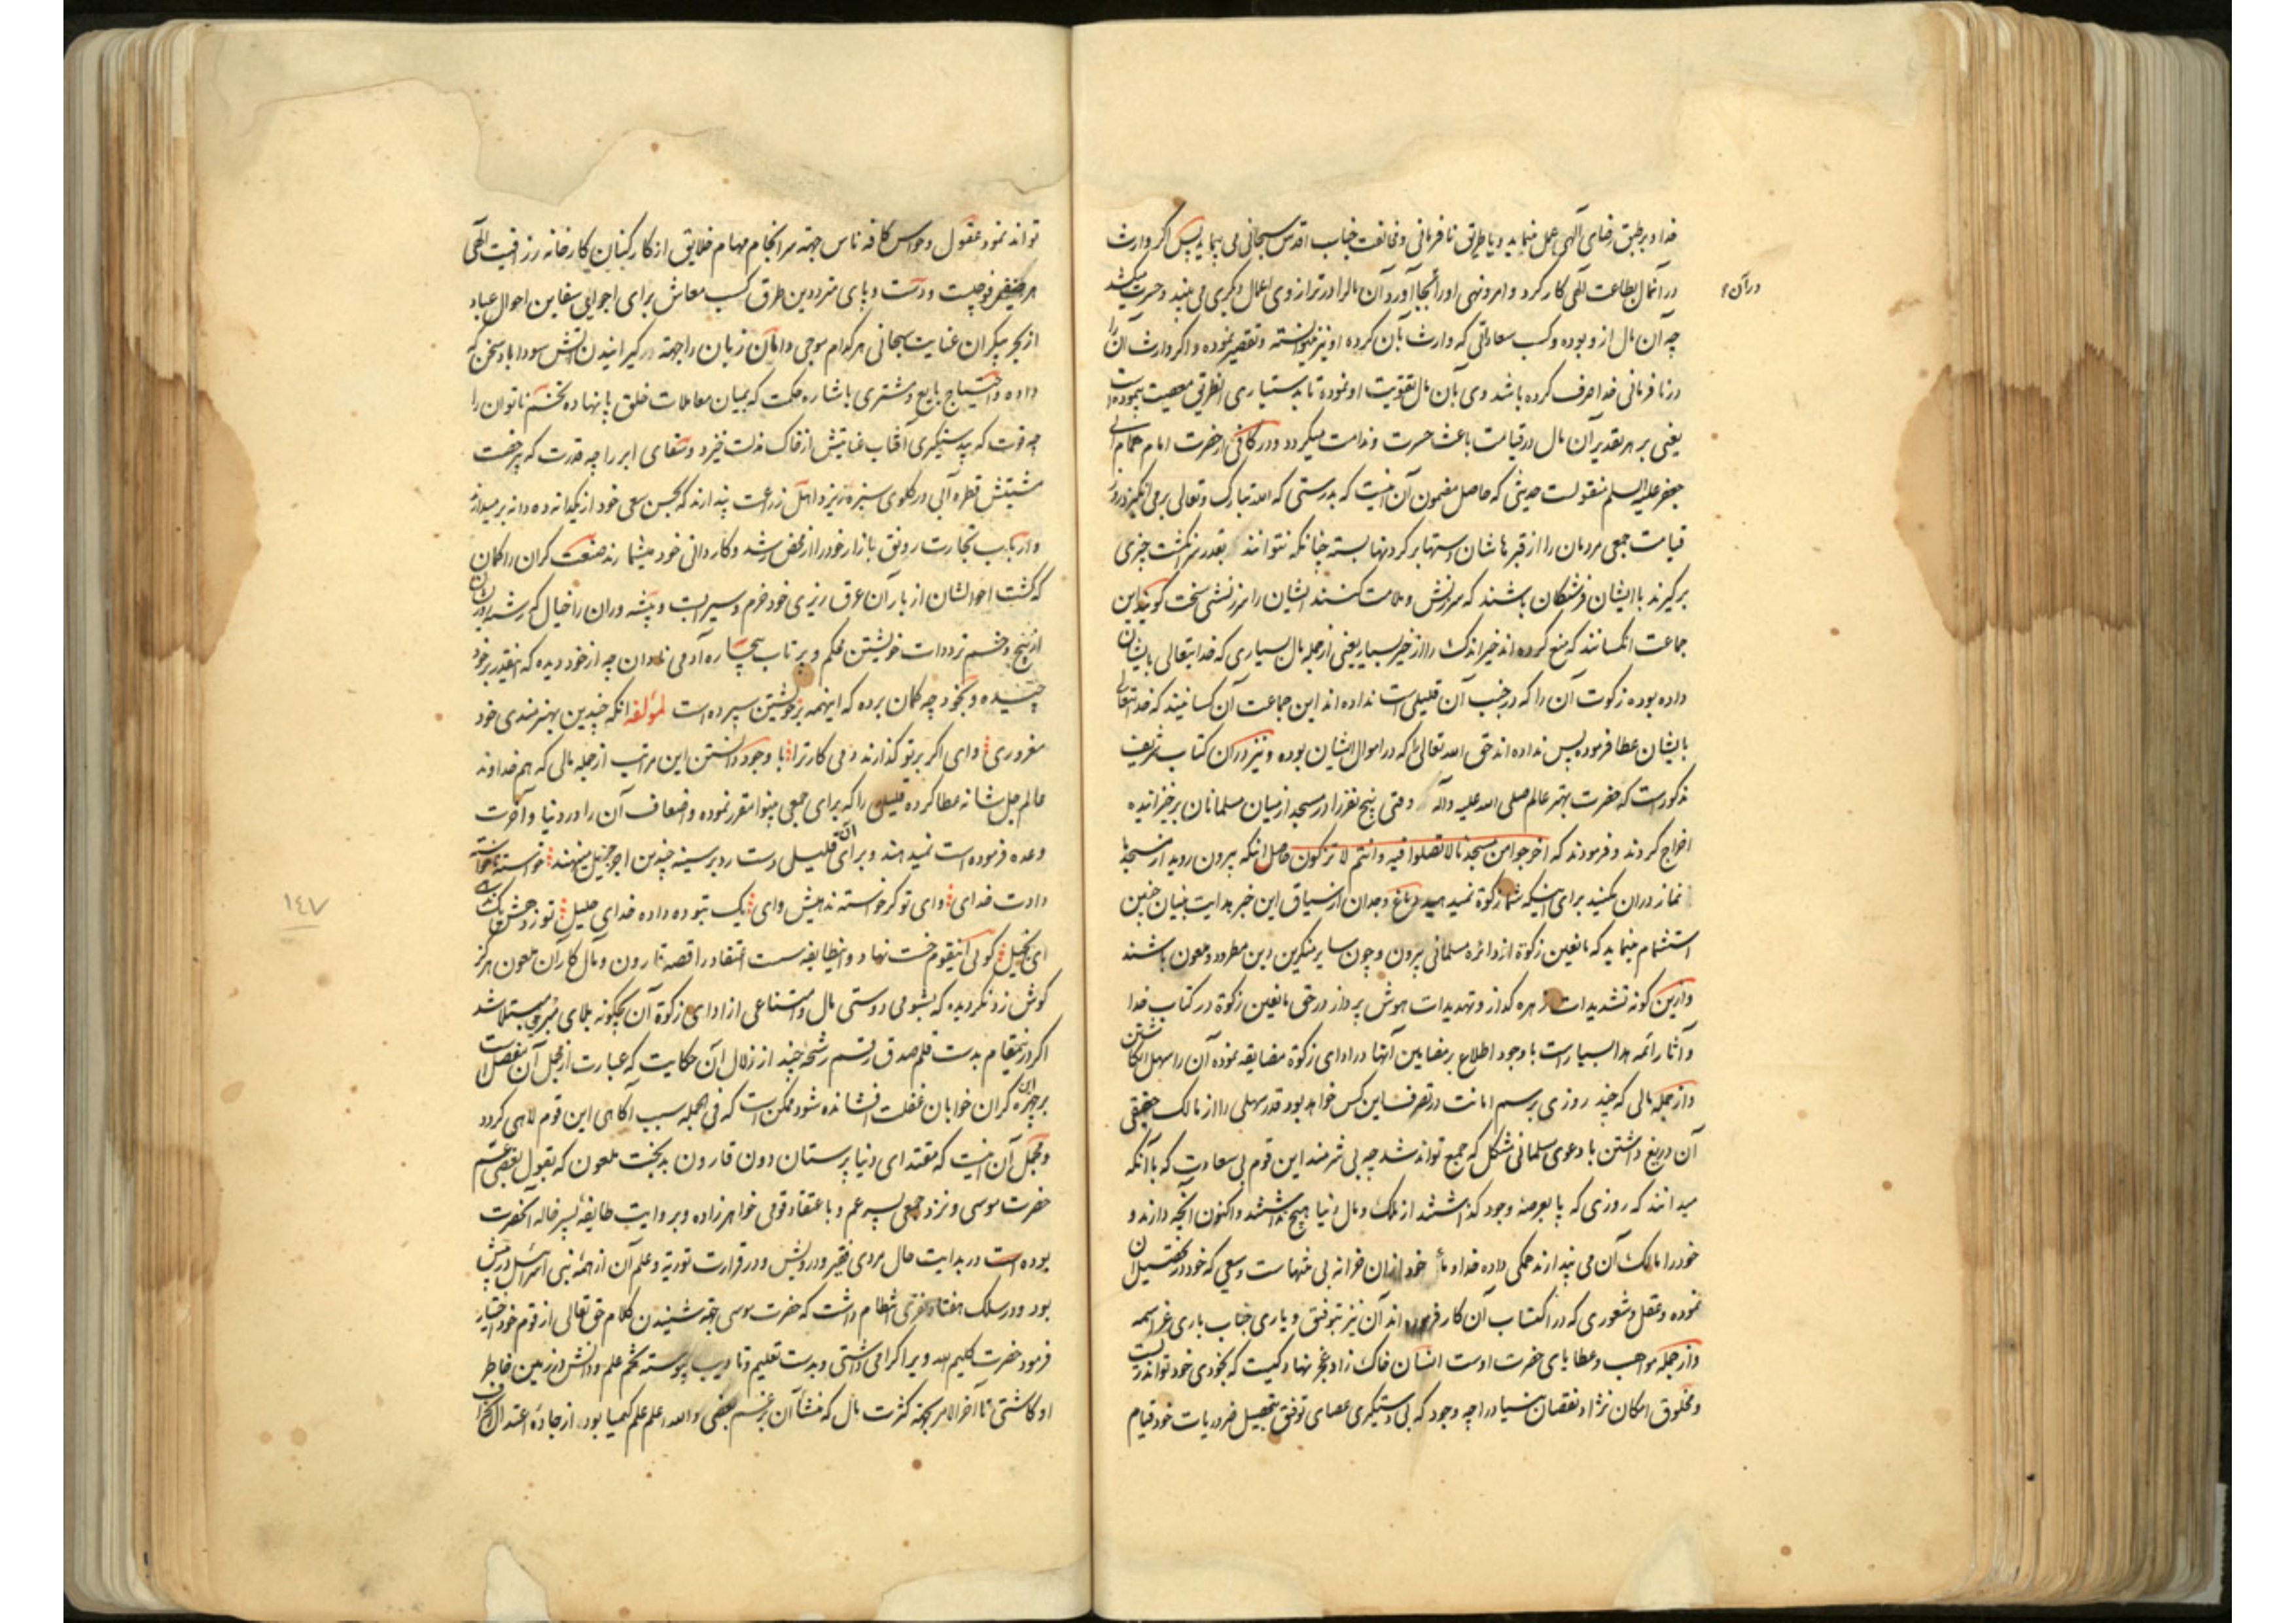 خدا و بر طبق رضای آلهی عمل مینماید و یا طریق نافرمانی و مخالفت جناب اقدس سبحانی می پیماید پس اکر وارث
در آنمال بطاعت آلهی کار کرد و امر و نهی او را بجا آورد آن مال را در ترازوی اعمال دیکری می بیند و حسرت میکشد
در آن
چه آن مال از و بوده و کسب سعاداتی که وارث بآن کرده او نیز میتوانسته و تقصیر نموده و اکر وارث آن را
در نافرمانی خدا صرف کرده باشد وی بآن مال تقویت او نموده تا بدستیاری آن طریق معصیت پیموده است
یعنی بر هر تقدیر آن مال در قیامت باعث حسرت و ندامت میکردد و در کافی از حضرت امام همام ابی
جعفر علیه السلم منقولست حدیثی که حاصل مضمون آن اینست که بدرستی که الله تبارک و تعالی بر می انکیزد روز
قیامت جمعی مردمان را از قبرهاشان دستها بر کردنها بسته چنانکه نتوانند بقدر سر انکشت چیزی
برکیرند با ایشان فرشتکان باشند که سرزنش و ملامت کنند ایشان را سرزنشی سخت کویند این
جماعت انکسانند که منع کرده اند خیر اندک را از خیر بسیار یعنی از جمله مال بسیاری که خدایتعالی بایشان
داده بوده زکوت آن را که در جنب آن قلیلی است نداده اند این جماعت آن کسانیند که خدایتعالی
بایشان عطا فرموده پس نداده اند حق الله تعالی را که در اموال ایشان بوده و نیز در آن کتاب شریف
مذکورست که حضرت بهتر عالم صلی الله علیه و آله وقتی پنج نفر را در مسجد از میان مسلمانان برخیزانیده
اخراج کردند و فرمودند که اخرجوا من مسجدنا لا تصلوا فیه و انتم لا تزکون حاصل انکه بیرون روید از مسجد ما
نماز در ان مکنید برای اینکه شما زکوة نمیدهید دماغ وجدان از سیاق این خبر هدایت بنیان چنین
استشمام مینماید که مانعین زکوة از دائره مسلمانی بیرون و چون سایر منکرین دین مطرود و ملعون باشند
و ازین کونه تشدیدات زهره کداز و تهدیدات هوش پرداز در حق مانعین زکوة در کتاب خدا
و آثار ائمه هدا بسیار است با وجود اطلاع بر مضامین آنها در ادای زکوة مضایقه نموده آن را سهل انکاشتن
و از جمله مالی که چند روزی برسم امانت در تصرف این کس خواهد بود قدر سهلی را از مالک حقیقی
آن دریغ داشتن با دعوی مسلمانی مشکل که جمع تواند شد چه بی شرمند این قوم بی سعادت که با آنکه
میدانند که روزی که پا بعرصه وجود کذاشتند از ملک و مال دنیا هیچ نداشتند و اکنون آنچه دارند و
خود را مالک آن می پندارند همکی داده خدا و از ان خزانه بی منتهاست و سعیی که خود در تحصیل آن
نموده و عقل و شعوری که در اکتساب آن کار فرموده اند آن نیز بتوفیق و یاری جناب باری عز اسمه
و از جمله مواهب و عطایای حضرت اوست انسان خاک زاد عجز نهاد کیست که بخودی خود تواند زیست
و مخلوق امکان نژاد نقصان بنیاد را چه وجود که بی دستیکری عصای توفیق بتحصیل ضروریات خود قیام
تواند نمود عقول و حواس کافه ناس جهته سرانجام مهام خلایق از کارکنان کارخانه رزاقیت آلهی
هر یک نفر فوجیست و دست و پای مترددین طرق کسب معاش برای اجرای سفاین احوال عباد
از بحر بیکران عنایت سبحانی هر کدام موجی دامان زبان را جهته درکیرانیدن آتش سودا باد سخن که
داده و احتیاج بایع و مشتری با شاره حکمت که بمیان معاملات خلق پا نهاده تخم ناتوان را
چه قوت که بی دستیکری آفتاب عنایتش از خاک مذلت خیزد و سقای ابر را چه قدرت که بی رخصت
مشیتش قطره آبی در کلوی سبزه ریزد اهل زراعت پندارند که بحسن سعی خود از یکدانه ده دانه بر میدارند
و ارباب تجارت رونق بازار خود را از محض رشد و کاردانی خود میشمارند صنعت کران را کمان
که کشت احوالشان از باران عرق ریزی خود خرم و سیرابست و پیشه وران را خیال که رشته روزیشان
از پیچ و خم ترددات خویشتن محکم و پر تاب بیچاره آدمی نادان چه از خود دیده که اینقدر بر خود
چسبیده و بخود چه کمان برده که اینهمه بر خویشتن سپرده است لمؤلفه آنکه چندین بهنرمندی خود
مغروری وای اکر بر تو کذارند دمی کار ترا با وجود دانستن این مراتب از جمله مالی که هم خداوند
عالم جل شانه عطا کرده قلیلی را که برای جمعی بینوا مقرر نموده و اضعاف آن را در دنیا و آخرت
وعده فرموده است نمیدهند و برای آن قلیلی دست رد بر سینه چندین اجر جزیل مینهند خواسته ناخواسته
دادت خدای وای تو کر خواسته ندهیش وای یک بتو ده داده خدای جلیل تو زدهش یک ندهی
ای بخیل کویی اینقوم خست نهاد و اینطایفه سست اعتقاد را قصه قارون و مآل کار آن ملعون هرکز
کوش زد نکردیده که بشومی دوستی مال و امتناعی از ادای زکوة آن چکونه ببلای مبتلا شد
اکر در اینمقام بدست قلم صدق رقم رشحه چند از زلال آن حکایت که عبارت از مجمل آن مفصل است
بر چهره این کران خوابان غفلت افشانده شود ممکن است که فی الجمله سبب آکاهی این قوم لاهی کردد
و مجمل آن اینست که مقتدای دنیا پرستان دون قارون بدبخت ملعون که بقول بعضی عم
حضرت موسی و نزد جمعی پسر عم و باعتقاد قومی خواهرزاده و بروایت طایفه پسر خاله آنحضرت
بوده است در بدایت حال مردی فقیر و درویش و در قراءت توریة و علم آن از همه بنی اسرائیل در پیش
بود و در سلک هفتاد نفری انتظام داشت که حضرت موسی جهته شنیدن کلام حق تعالی از قوم خود اختیار
فرمود حضرت کلیم الله ویرا کرامی داشتی و بدست تعلیم و تادیب پیوسته تخم علم و دانش در زمین خاطر
او کاشتی تا آخر الامر بجهته کثرت مال که منشأ آن بزعم بعضی و الله اعلم علم کیمیا بود از جادهٔ اعتدال انحراف
۱٤۷